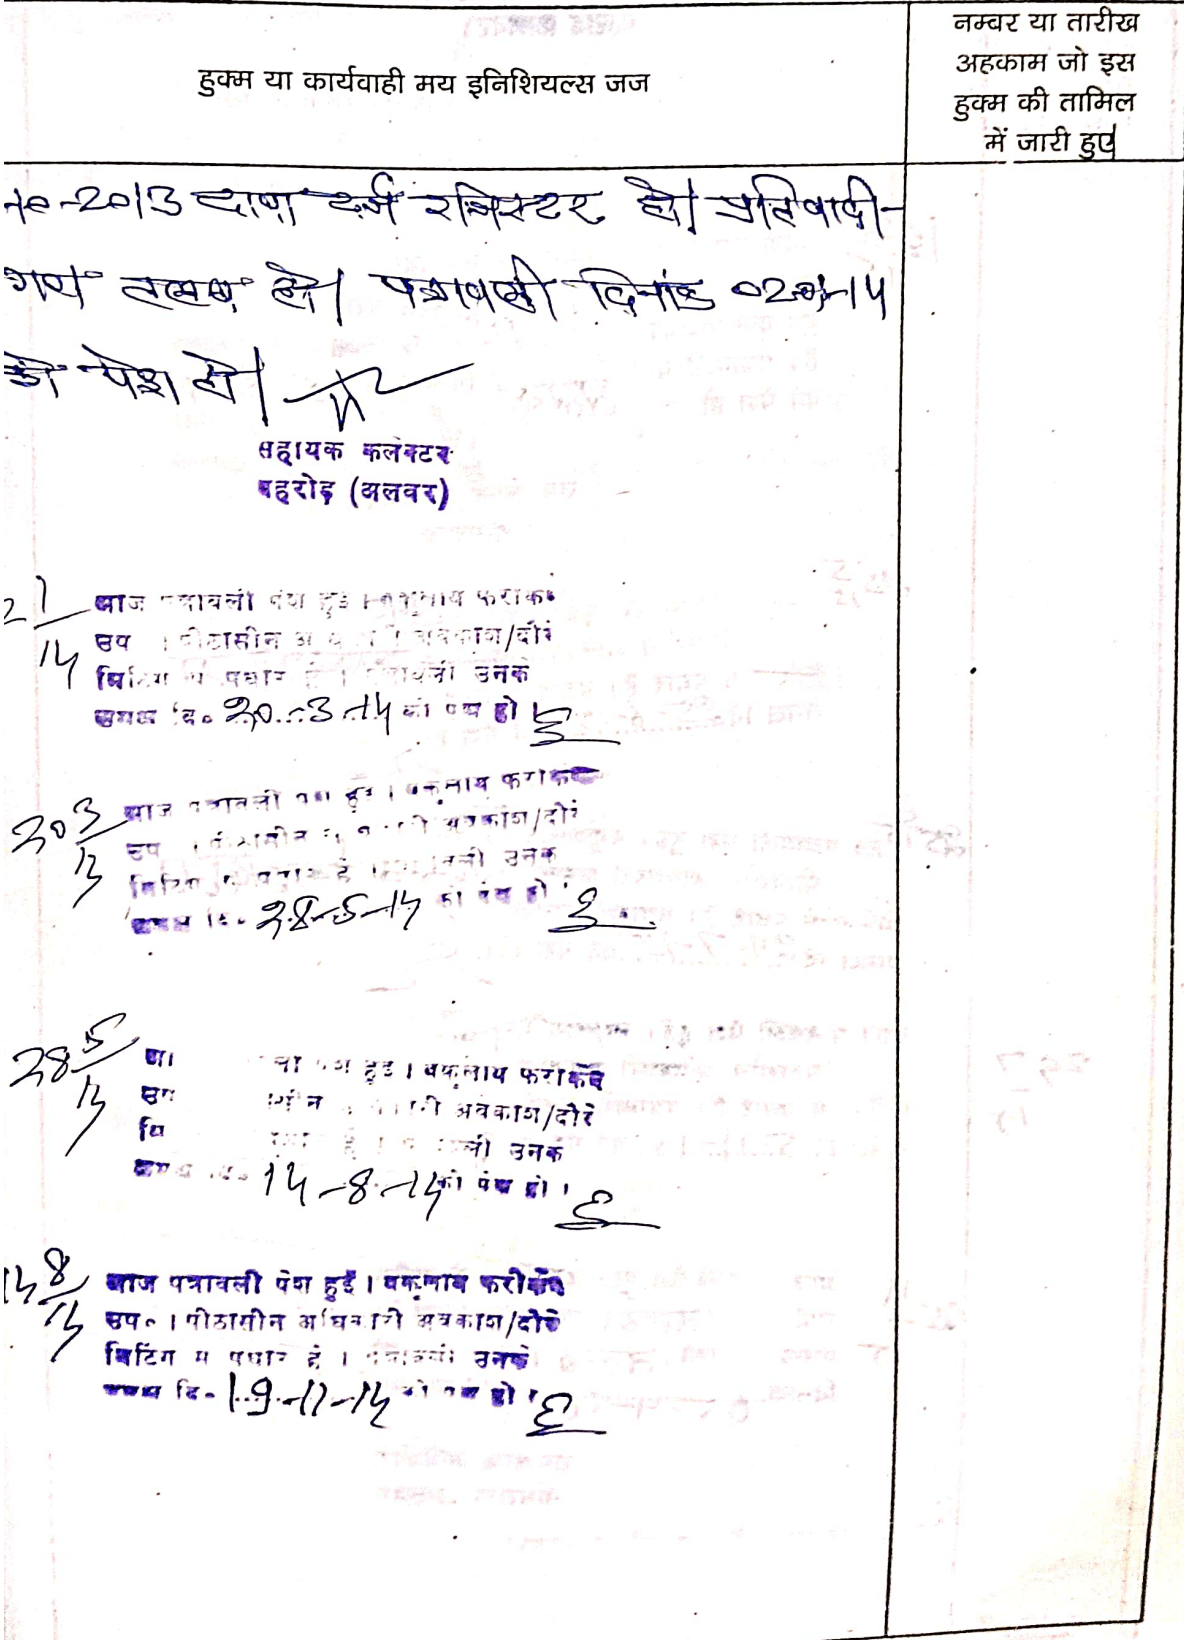 हुक्म या कार्यवाही मय इनिशियल्स जज
नम्बर या तारीख
अहकाम जो इस
हुक्म की तामिल
में जारी हुए
-2013 दावा दर्ज रजिस्टर हो। प्रतिवादी-
गण तलब हो। पत्रावली दिनांक
को पेश हो।
सहायक कलेक्टर
बहरोड़ (अलवर)
आज पत्रावली पेश हुई । वकुलाय फरीकेन
14
उप । पीठासीन अवकाश/दौरे
मिटिंग में पधारे है । पत्रावली उनके
समक्ष दि. 20-3-14 को पेश हो
20 3
आज पत्रावली पेश हुई । वकुलाय फरीकेन
उप । पीठासीन अवकाश/दौरे
मिटिंग में पधारे है । उनके
समक्ष दि. 28-5-14 को पेश हो
28 5
पेश हुई । वकुलाय फरीकेन
अवकाश/दौरे
उनके
14-8-14 को पेश हो ।
14 8
14
आज पत्रावली पेश हुई । वकुलाय फरीकेन
उप॰ । पीठासीन अधिकारी अवकाश/दौरे
मिटिंग में पधारे है । पत्रावली उनके
समक्ष दि. 19-11-14 को पेश हो